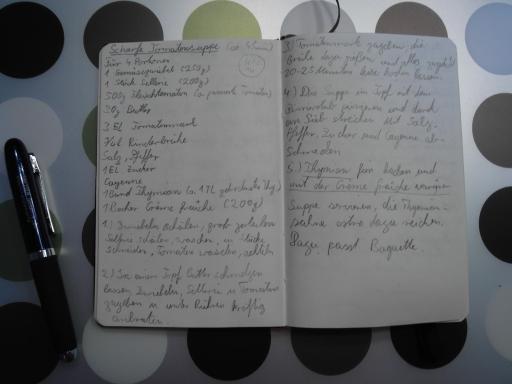 Scharfe Tomatensuppe
Für 4 Portionen
1 Gemüsezwiebel (250g)
1 Stück Sellerie (200g)
500g Fleischtomaten (o. passierte Tomaten)
30g Butter
3 EL Tomatenmark
3/4l Rinderbrühe
Salz, Pfeffer
1 EL Zucker
Cayenne
1 Bund Thymian (o. 1 TL getrockneter Thy.)
1 Becher Crème fraîche (200g)
1) Zwiebeln schälen, grob zerteilen
Sellerie schälen, waschen, in Stücke
schneiden, Tomaten waschen, achteln
2) In einem Topf Butter schmelzen
lassen Zwiebeln, Sellerie u Tomaten
zugeben u. unter Rühren kräftig
anbraten.
3. Tomatenmark zugeben, die
Brühe dazu gießen und alles zugedeckt
20-25 Minuten leise kochen lassen.
4) Die Suppe im Topf mit dem
Pürierstab pürieren und durch
ein Sieb streichen Mit Salz,
Pfeffer, Zucker und Cayenne ab-
schmecken
5.) Thymian fein hacken und
mit der Crème fraîche verrühren
Suppe servieren, die Thymian-
sahne extra dazu reichen.
Dazu passt Baguette.